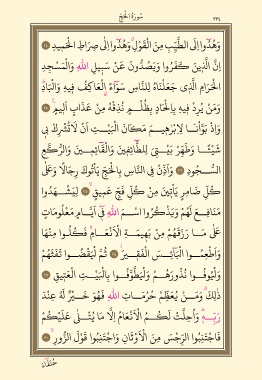 ٣٣٤ سُورَةُ الْحَجِّ
وَهُدُٓوا اِلَى الطَّيِّبِ مِنَ الْقَوْلِۚ وَهُدُٓوا اِلٰى صِرَاطِ الْحَم۪يدِ ﴿٢٤﴾
اِنَّ الَّذ۪ينَ كَفَرُوا وَيَصُدُّونَ عَنْ سَب۪يلِ اللّٰهِ وَالْمَسْجِدِ
الْحَرَامِ الَّذ۪ي جَعَلْنَاهُ لِلنَّاسِ سَوَٓاءًۨ الْعَاكِفُ ف۪يهِ وَالْبَادِۜ
وَمَنْ يُرِدْ ف۪يهِ بِاِلْحَادٍ بِظُلْمٍ نُذِقْهُ مِنْ عَذَابٍ اَل۪يمٍ۟ ﴿٢٥﴾
وَاِذْ بَوَّأْنَا لِاِبْرٰه۪يمَ مَكَانَ الْبَيْتِ اَنْ لَا تُشْرِكْ ب۪ي
شَيْـًٔا وَطَهِّرْ بَيْتِيَ لِلطَّٓائِف۪ينَ وَالْقَٓائِم۪ينَ وَالرُّكَّعِ
السُّجُودِ ﴿٢٦﴾ وَاَذِّنْ فِي النَّاسِ بِالْحَجِّ يَأْتُوكَ رِجَالًا وَعَلٰى
كُلِّ ضَامِرٍ يَأْت۪ينَ مِنْ كُلِّ فَجٍّ عَم۪يقٍۙ ﴿٢٧﴾ لِيَشْهَدُوا
مَنَافِعَ لَهُمْ وَيَذْكُرُوا اسْمَ اللّٰهِ ف۪ٓي اَيَّامٍ مَعْلُومَاتٍ
عَلٰى مَا رَزَقَهُمْ مِنْ بَه۪يمَةِ الْاَنْعَامِۚ فَكُلُوا مِنْهَا
وَاَطْعِمُوا الْبَٓائِسَ الْفَق۪يرَۘ ﴿٢٨﴾ ثُمَّ لْيَقْضُوا تَفَثَهُمْ
وَلْيُوفُوا نُذُورَهُمْ وَلْيَطَّوَّفُوا بِالْبَيْتِ الْعَت۪يقِ ﴿٢٩﴾
ذٰلِكَۗ وَمَنْ يُعَظِّمْ حُرُمَاتِ اللّٰهِ فَهُوَ خَيْرٌ لَهُ عِنْدَ
رَبِّه۪ۜ وَاُحِلَّتْ لَكُمُ الْاَنْعَامُ اِلَّا مَا يُتْلٰى عَلَيْكُمْ
فَاجْتَنِبُوا الرِّجْسَ مِنَ الْاَوْثَانِ وَاجْتَنِبُوا قَوْلَ الزُّورِۙ ﴿٣٠﴾
حُنَفَٓاءَ